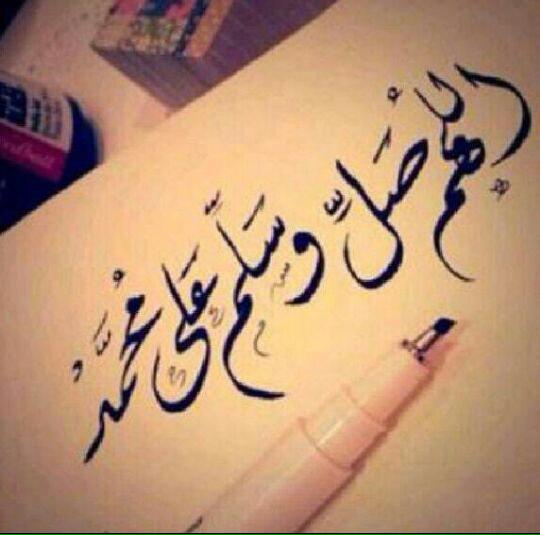 اللهم صلِّ وسلِّم على مُحمَّد